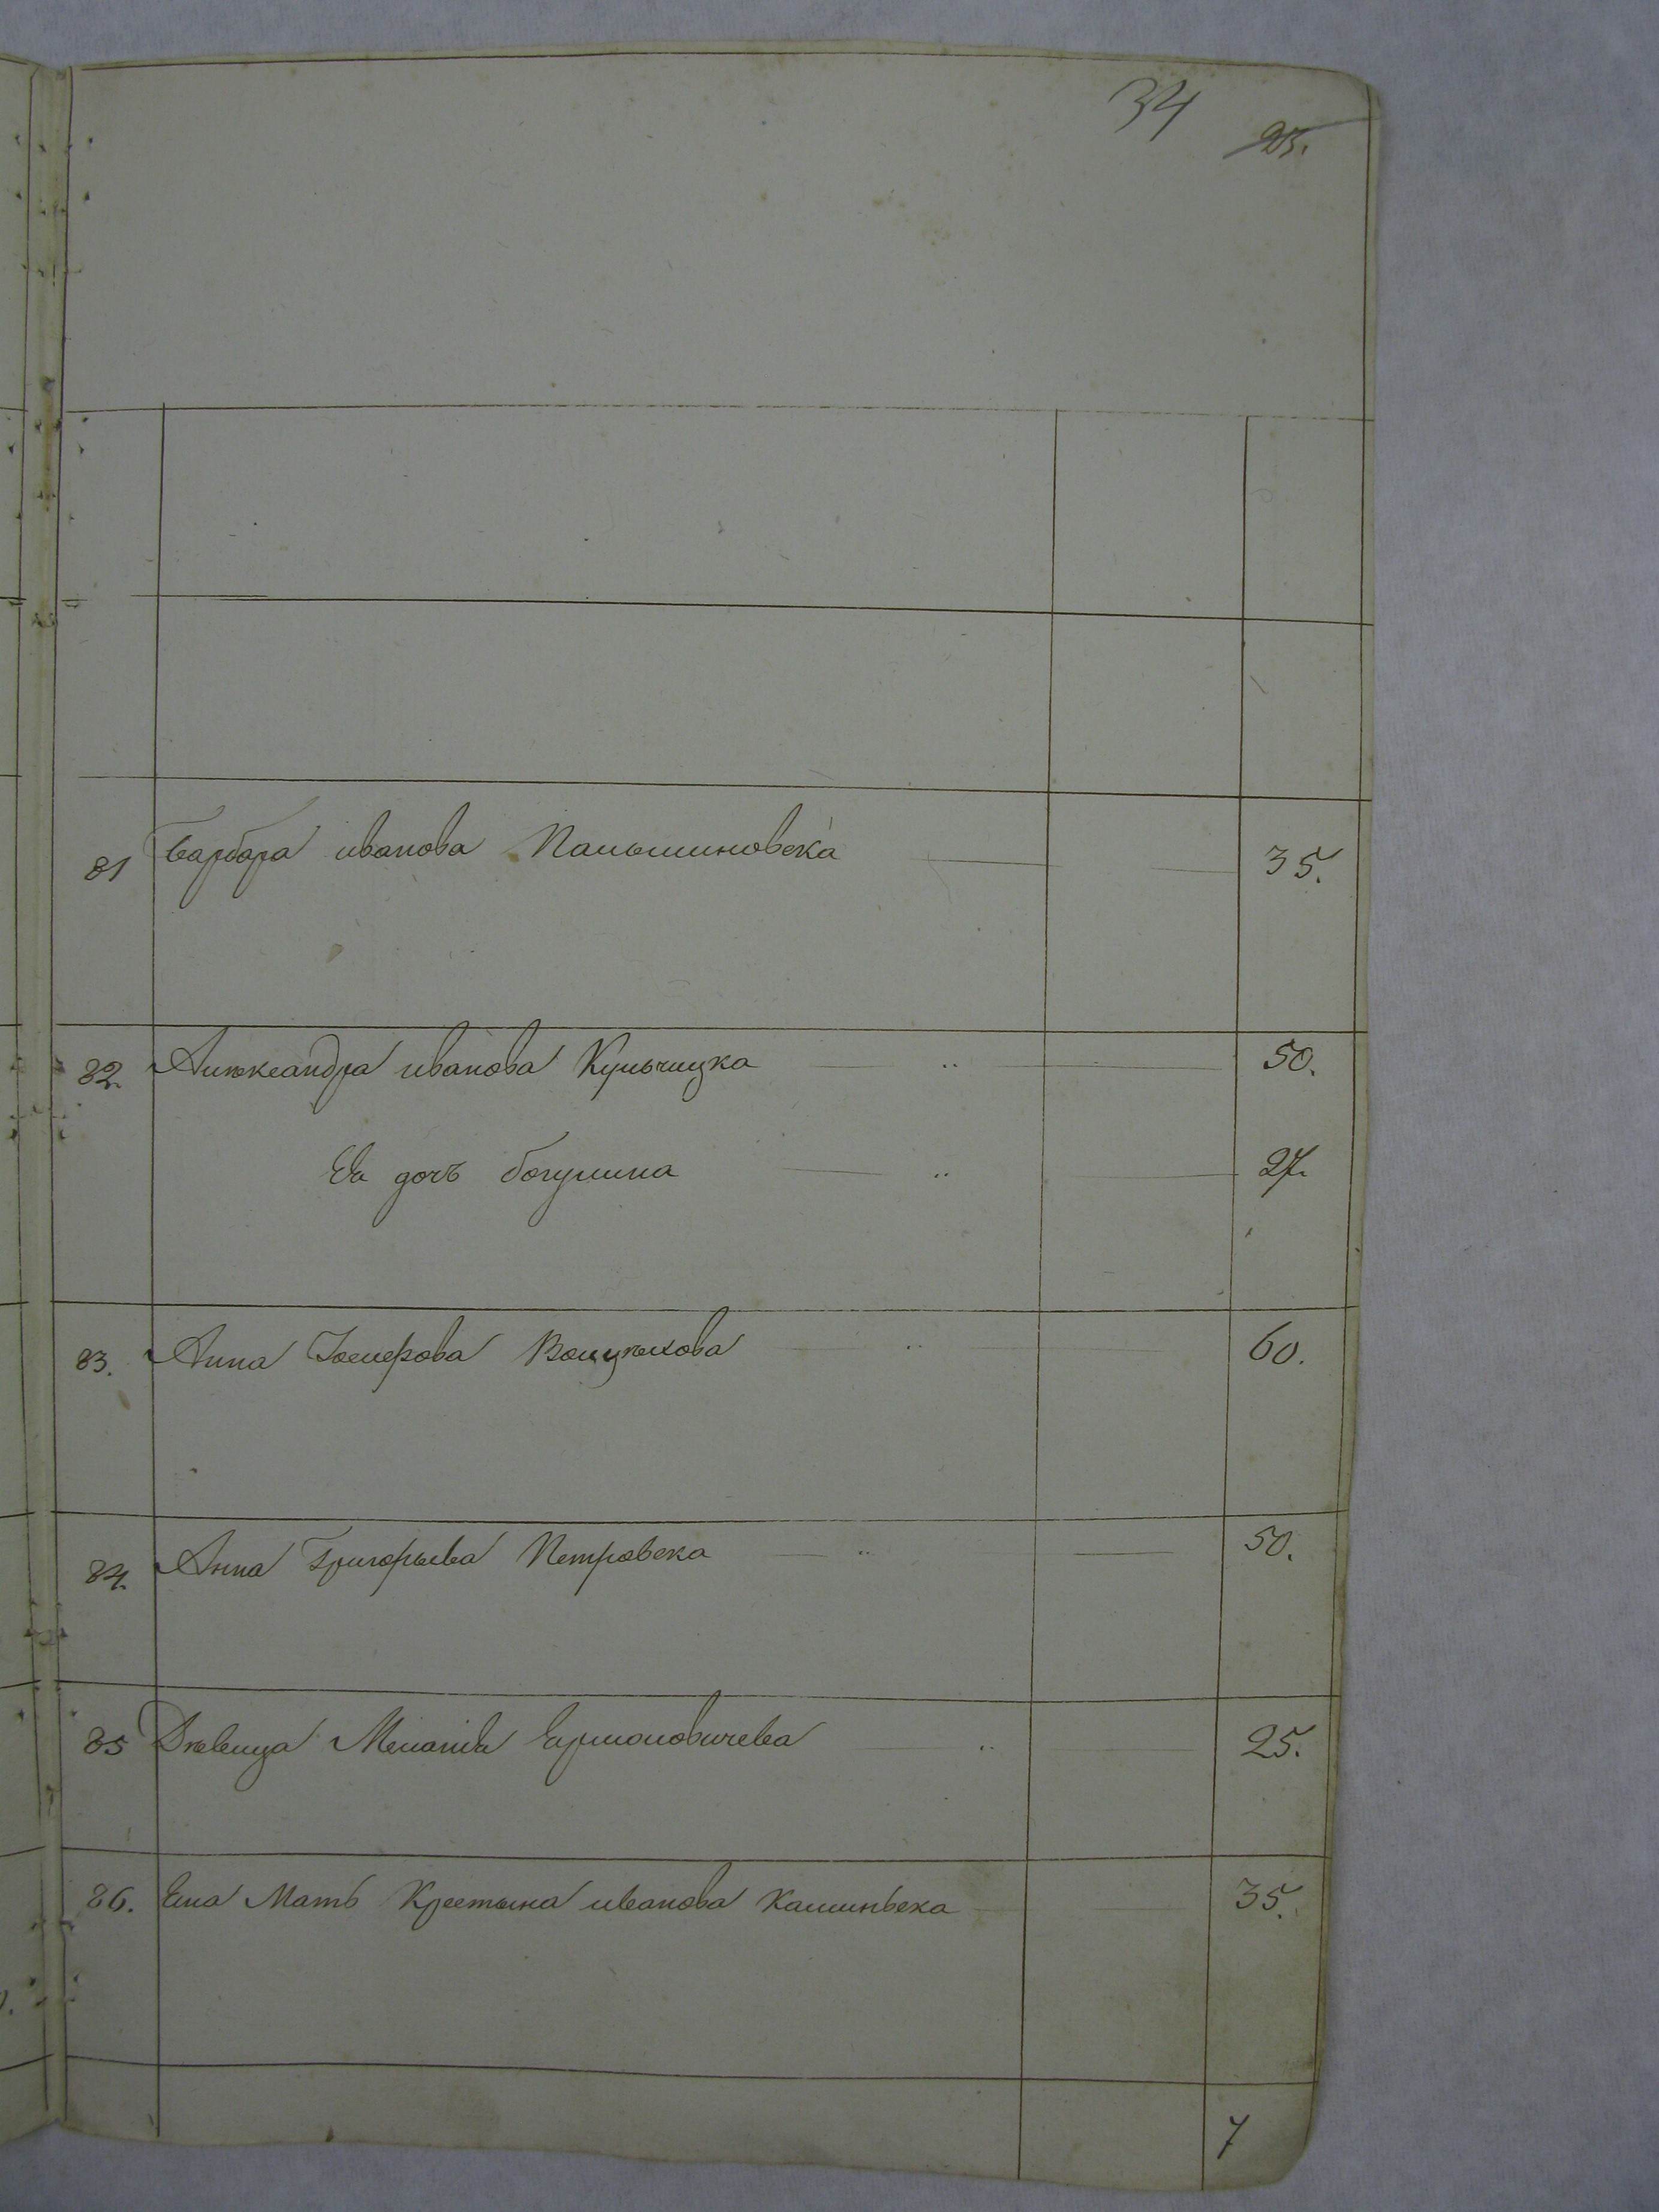 34
23.
81 Барбара иванова Пальшиновска 35.
82. Александра иванова Кульчицка 50.
Ея дочь богумила 27.
83. Анна Іосиферова 60.
84. Анна Григорьева Петровска 50.
85 Дѣвица Меланія 25.
86. Ена Мать Крестына иванова Калиньска 35.
7